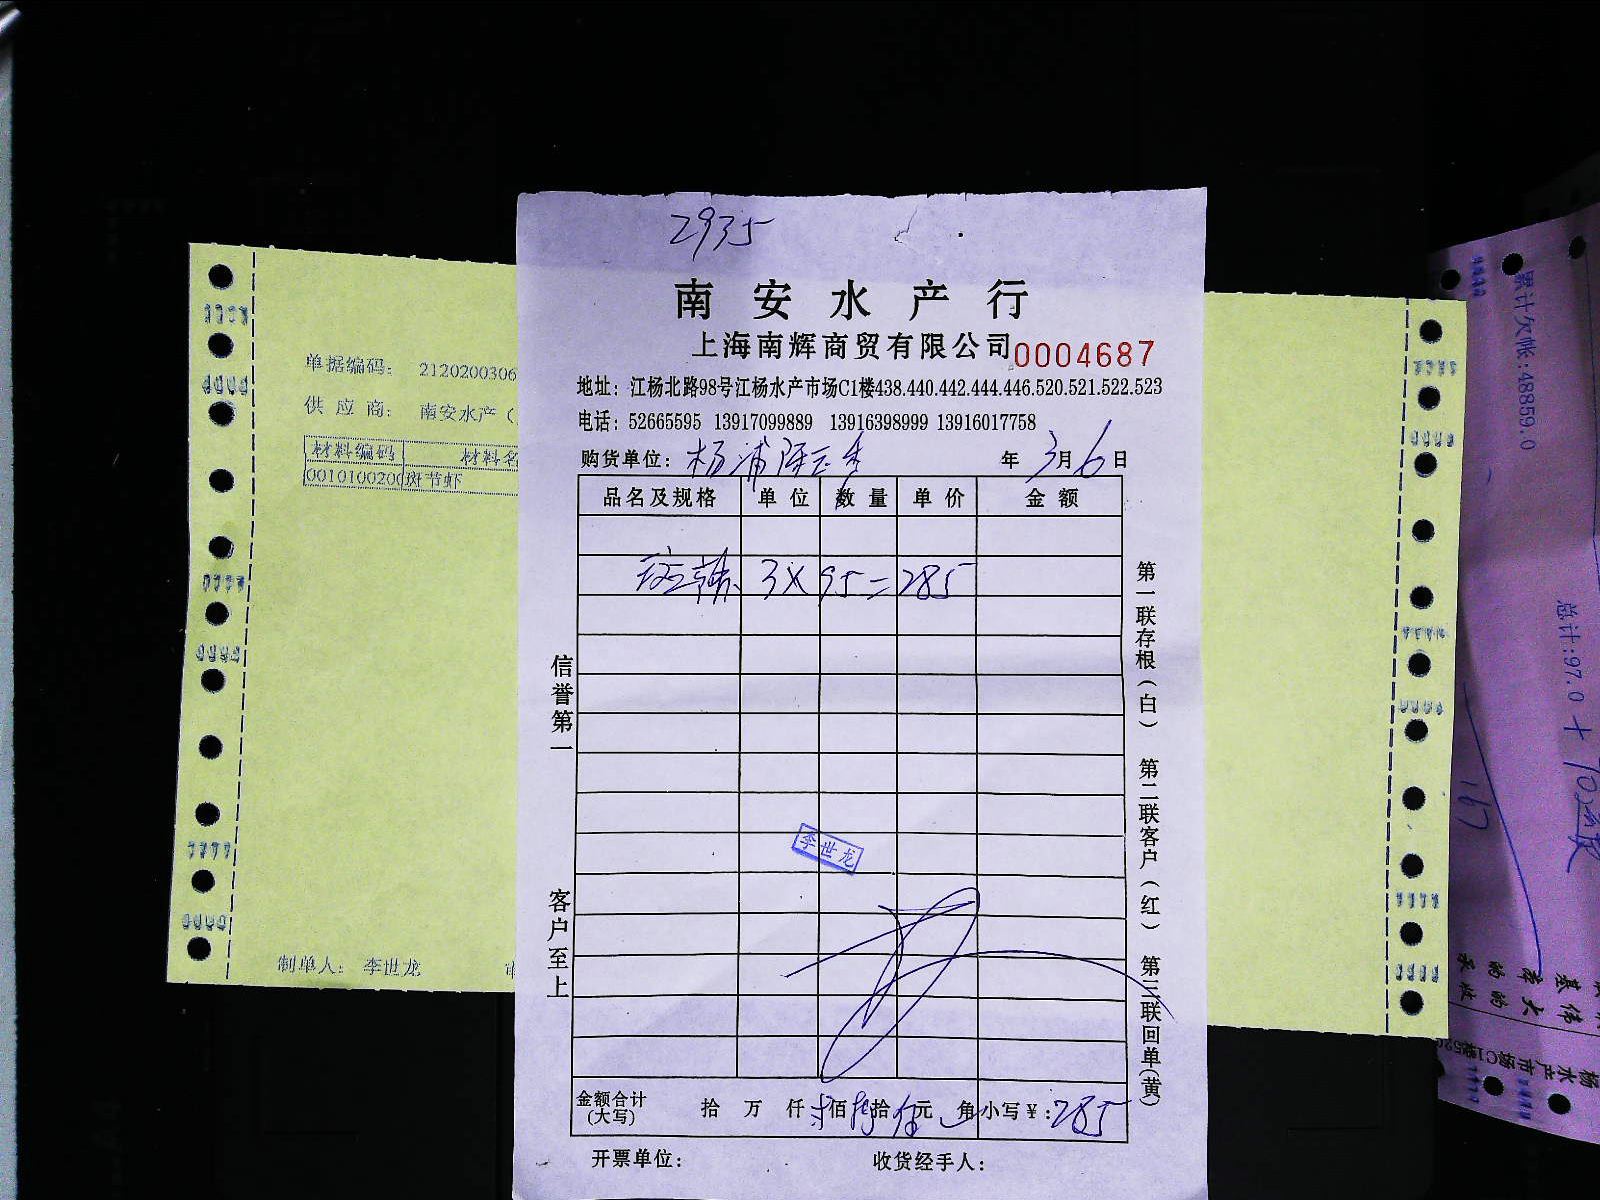 2935
南安水产行
上海南辉商贸有限公司 0004687
地址：江杨北路98号江杨水产市场C1楼438.440.442.444.446.520.521.522.523
电话：52665595 13917099889 13916398999 13916017758
购货单位：杨浦 年 3月6日
品名及规格 单位 数量 单价 金额
3X 95=285
李世龙
金额合计(大写) 拾 万 仟 佰 拾 元 角 小写￥：285
开票单位： 收货经手人：
信誉第一 客户至上
第一联存根（白） 第二联客户（红） 第三联回单（黄）
单据编码： 2120200306
供应商： 南安水产（
材料编码 材料名
0010100200 斑节虾
制单人： 李世龙
累计欠帐:48859.0
总计:97.0 +
197